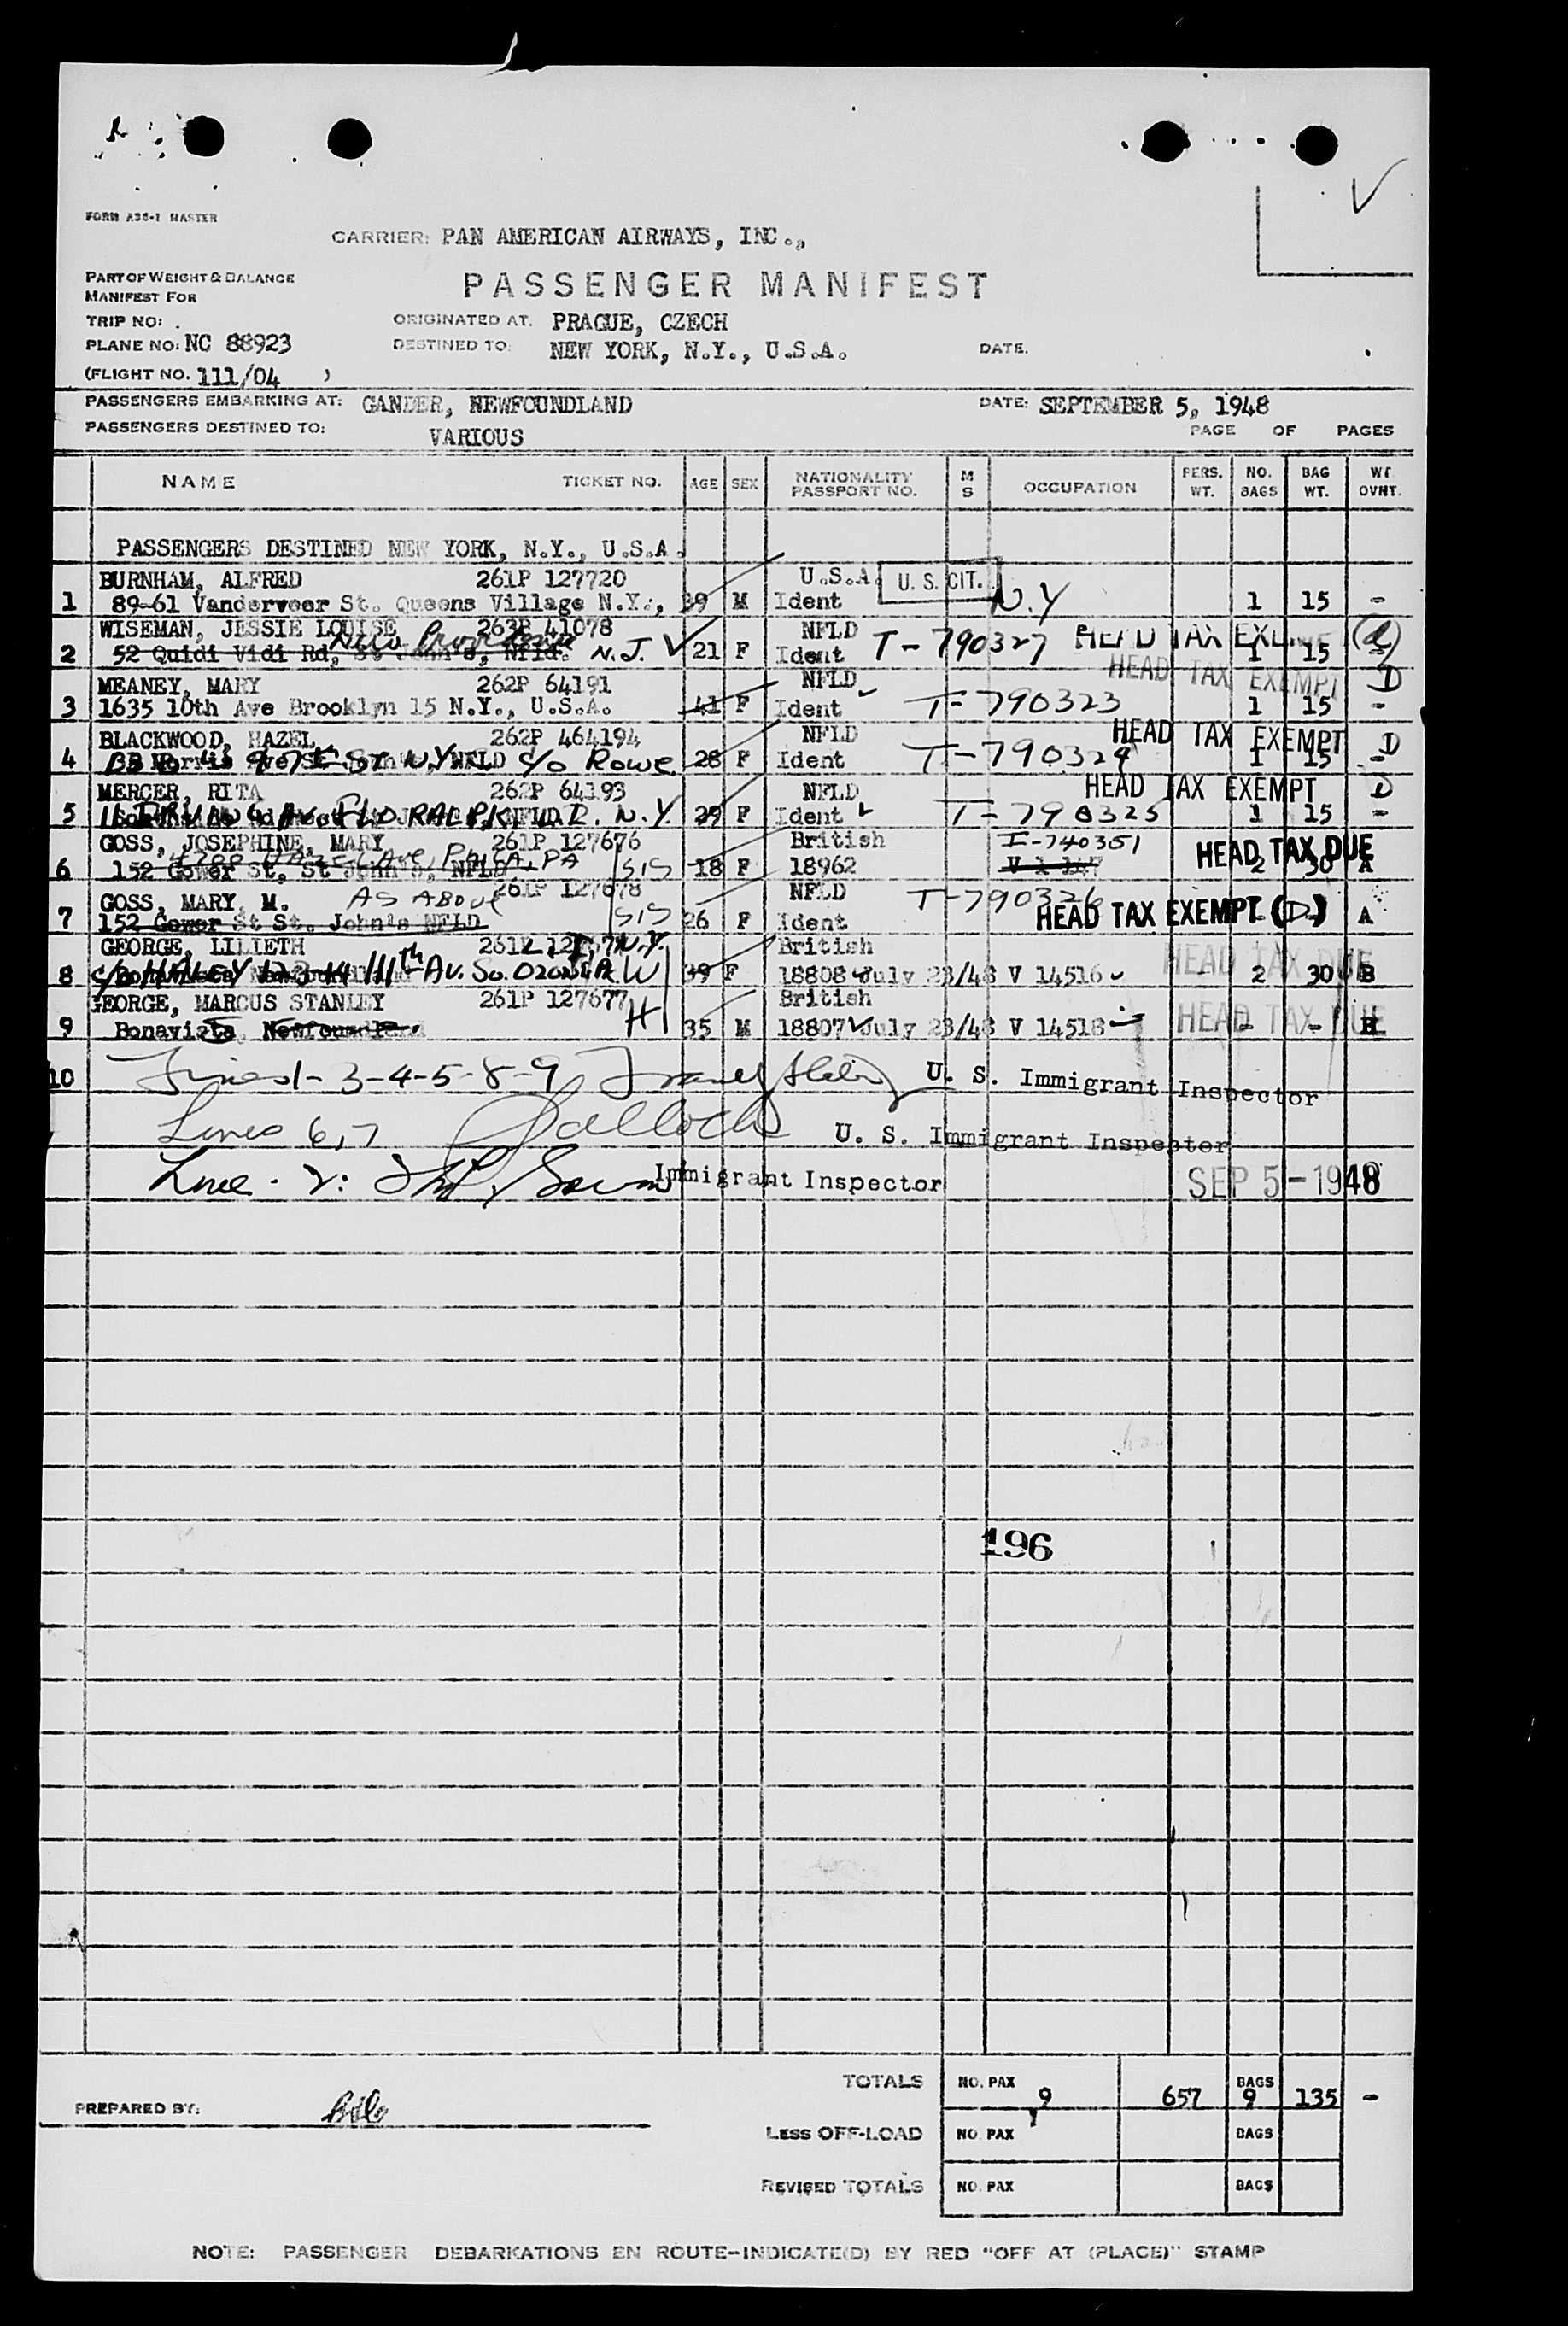 FORM A36-1 MASTER
CARRIER: PAN AMERICAN AIRWAYS, INC.,
PART OF WEIGHT & BALANCE
MANIFEST FOR
PASSENGER MANIFEST
TRIP NO:
ORIGINATED AT. PRAGUE, CZECH
PLANE NO: NC 88923
DESTINED TO: NEW YORK, N.Y., U.S.A.
DATE.
(FLIGHT NO. 111/04 )
PASSENGERS EMBARKING AT: GANDER, NEWFOUNDLAND
DATE: SEPTEMBER 5, 1948
PASSENGERS DESTINED TO: VARIOUS
PAGE OF PAGES
NAME TICKET NO. AGE SEX NATIONALITY PASSPORT NO. M S OCCUPATION PERS. WT. NO. BAGS BAG WT. WT. OVNT.
PASSENGERS DESTINED NEW YORK, N.Y., U.S.A.
BURNHAM, ALFRED 261P 127720 U.S.A. U. S. CIT.
1 89-61 Vanderveer St. Queens Village N.Y., 39 M Ident N.Y 1 15 -
WISEMAN, JESSIE LOUISE 263P 41078 NFLD T-790327 HEAD TAX
2 52 Quidi Vidi Rd, St John's, Nfld. N.J. 21 F Ident 1 15
HEAD TAX EXEMPT D
MEANEY, MARY 262P 64191 NFLD
3 1635 10th Ave Brooklyn 15 N.Y., U.S.A. 41 F Ident T-790323 1 15 -
BLACKWOOD, HAZEL 262P 464194 NFLD HEAD TAX EXEMPT D
4 97th St N.Y. c/o Rowe 28 F Ident T-790324 1 15 -
MERCER, RITA 262P 64193 NFLD HEAD TAX EXEMPT D
5 FLORAL PK. L.I. N.Y. 29 F Ident T-790325 1 15 -
GOSS, JOSEPHINE, MARY 261P 127676 British I-740351 HEAD TAX DUE
6 152 Gower St, St John's, NFLD Ave, Phila, PA SIS 18 F 18962 2 30 A
GOSS, MARY M. AS ABOVE 261P 127678 NFLD T-790326
7 152 Gower St St. John's NFLD SIS 26 F Ident HEAD TAX EXEMPT (D) A
GEORGE, LILIETH 261P L.I., N.Y. British HEAD TAX DUE
8 c/o HALEY 123-14 111th Av. So. OZONE PK W 39 F 18808 July 23/48 V 14516 - 2 30 B
GEORGE, MARCUS STANLEY 261P 127677 British HEAD TAX DUE
9 Bonavista, Newfoundland H 35 M 18807 July 23/48 V 14518 - - B
10 Lines 1-3-4-5-8-9 U. S. Immigrant Inspector
Lines 6,7 U. S. Immigrant Inspector
Line 2: Immigrant Inspector SEP 5-1948
196
TOTALS NO. PAX 9 657 BAGS 9 135 -
PREPARED BY:
LESS OFF-LOAD NO. PAX BAGS
REVISED TOTALS NO. PAX BAGS
NOTE: PASSENGER DEBARKATIONS EN ROUTE-INDICATE(D) BY RED "OFF AT (PLACE)" STAMP